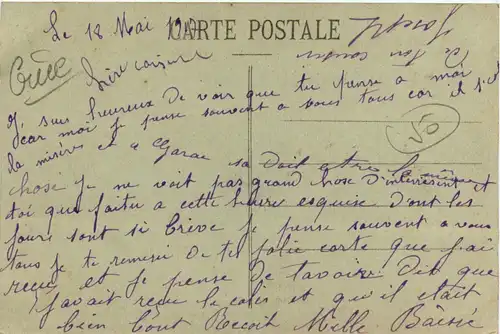 Le 18 Mai 19
CARTE POSTALE
Joseph
Ton cousin
Grèce
50
Chère cousine
Je suis heureux de voir que tu pense a moi
car moi je pense souvent a vous tous car il y a
la misère et a Garac sa doit etre la même
chose je ne voit pas grand chose d'interessent
toi que faitu a cette heure esquise Dont les
jours sont si brève je pense souvent a vous
tous je te remersi de ta jolie carte que j'ai
recu et je pense de tavoir dit que
j'avait recu le colis et qu'il etait
bien bout Recoit Mille Baisé